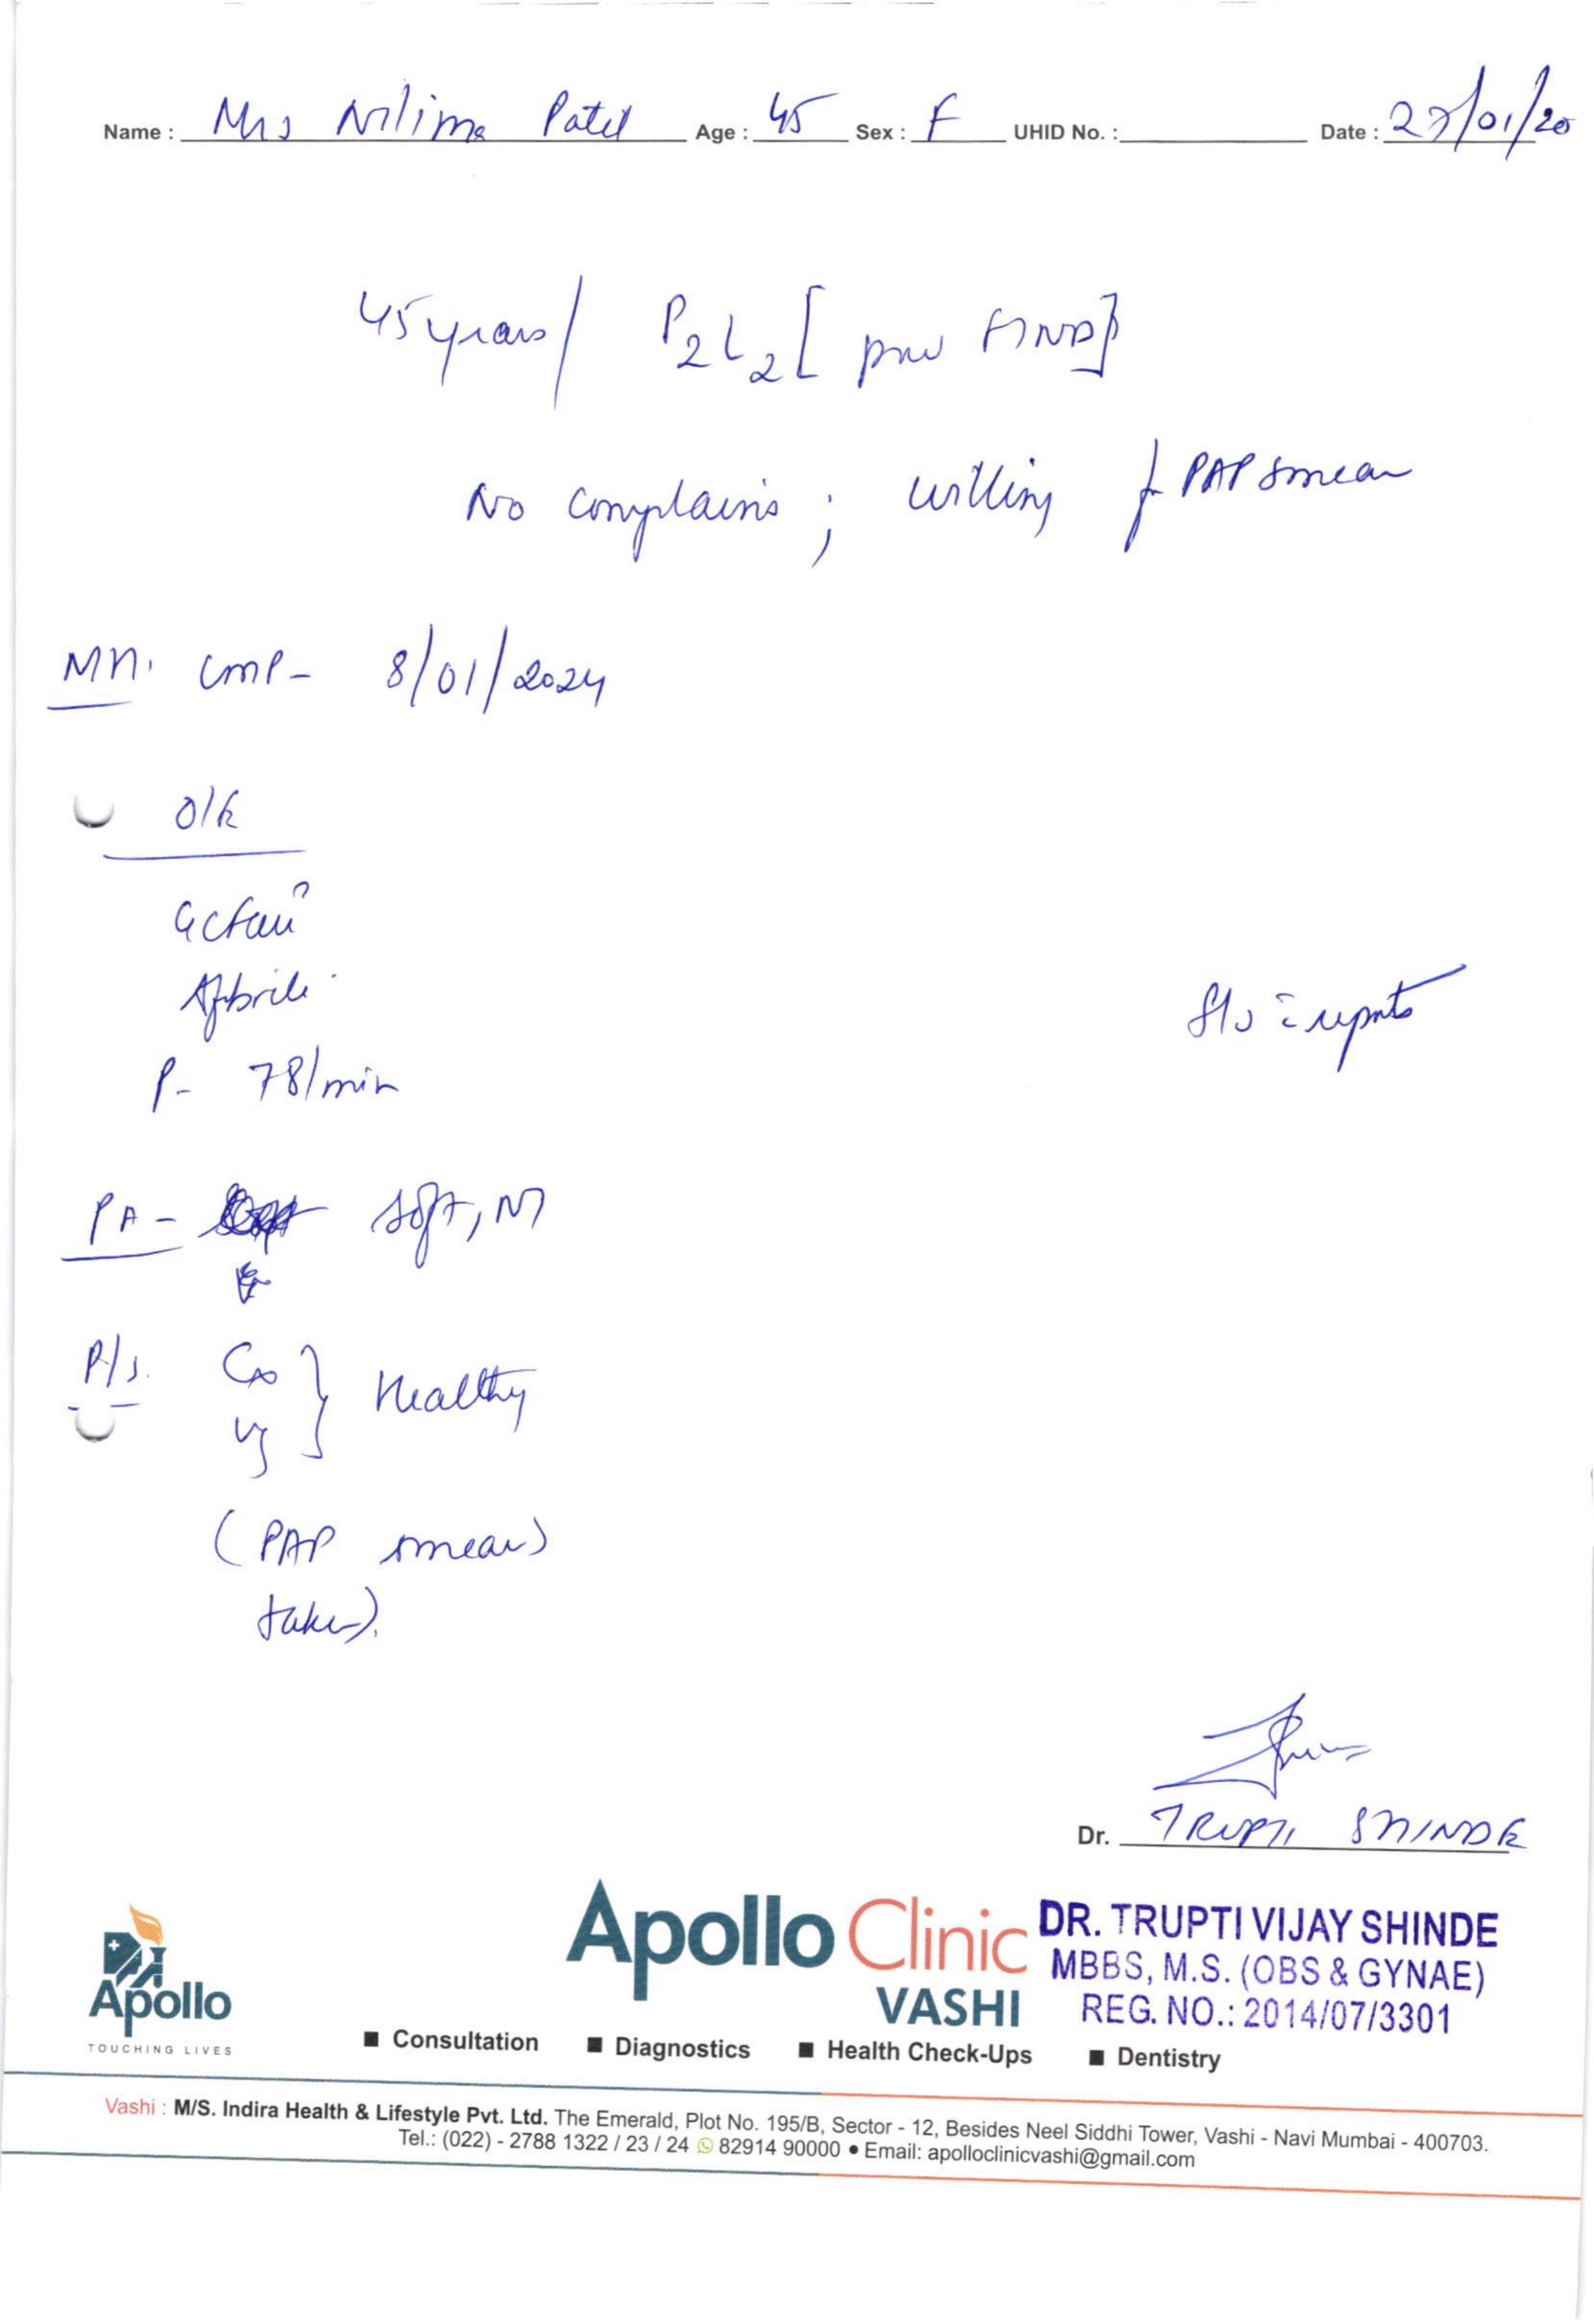 Name : Mrs Nilima Patel Age : 45 Sex : F UHID No. : Date : 27/01/20
45 years / P2L2 [ prev FTND]
No complains ; willing f PAP smear
MH. LMP - 8/01/2024
O/E
GC fair
Afebrile
P - 78/min
f/u c reports
PA - soft, NT
P/S. Cx } Healthy
Vg
(PAP smear
taken).
Dr. TRUPTI SHINDE
Apollo Clinic
VASHI
DR. TRUPTI VIJAY SHINDE
MBBS, M.S. (OBS & GYNAE)
REG. NO.: 2014/07/3301
Apollo
TOUCHING LIVES
■ Consultation ■ Diagnostics ■ Health Check-Ups ■ Dentistry
Vashi : M/S. Indira Health & Lifestyle Pvt. Ltd. The Emerald, Plot No. 195/B, Sector - 12, Besides Neel Siddhi Tower, Vashi - Navi Mumbai - 400703.
Tel.: (022) - 2788 1322 / 23 / 24 82914 90000 ● Email: apolloclinicvashi@gmail.com